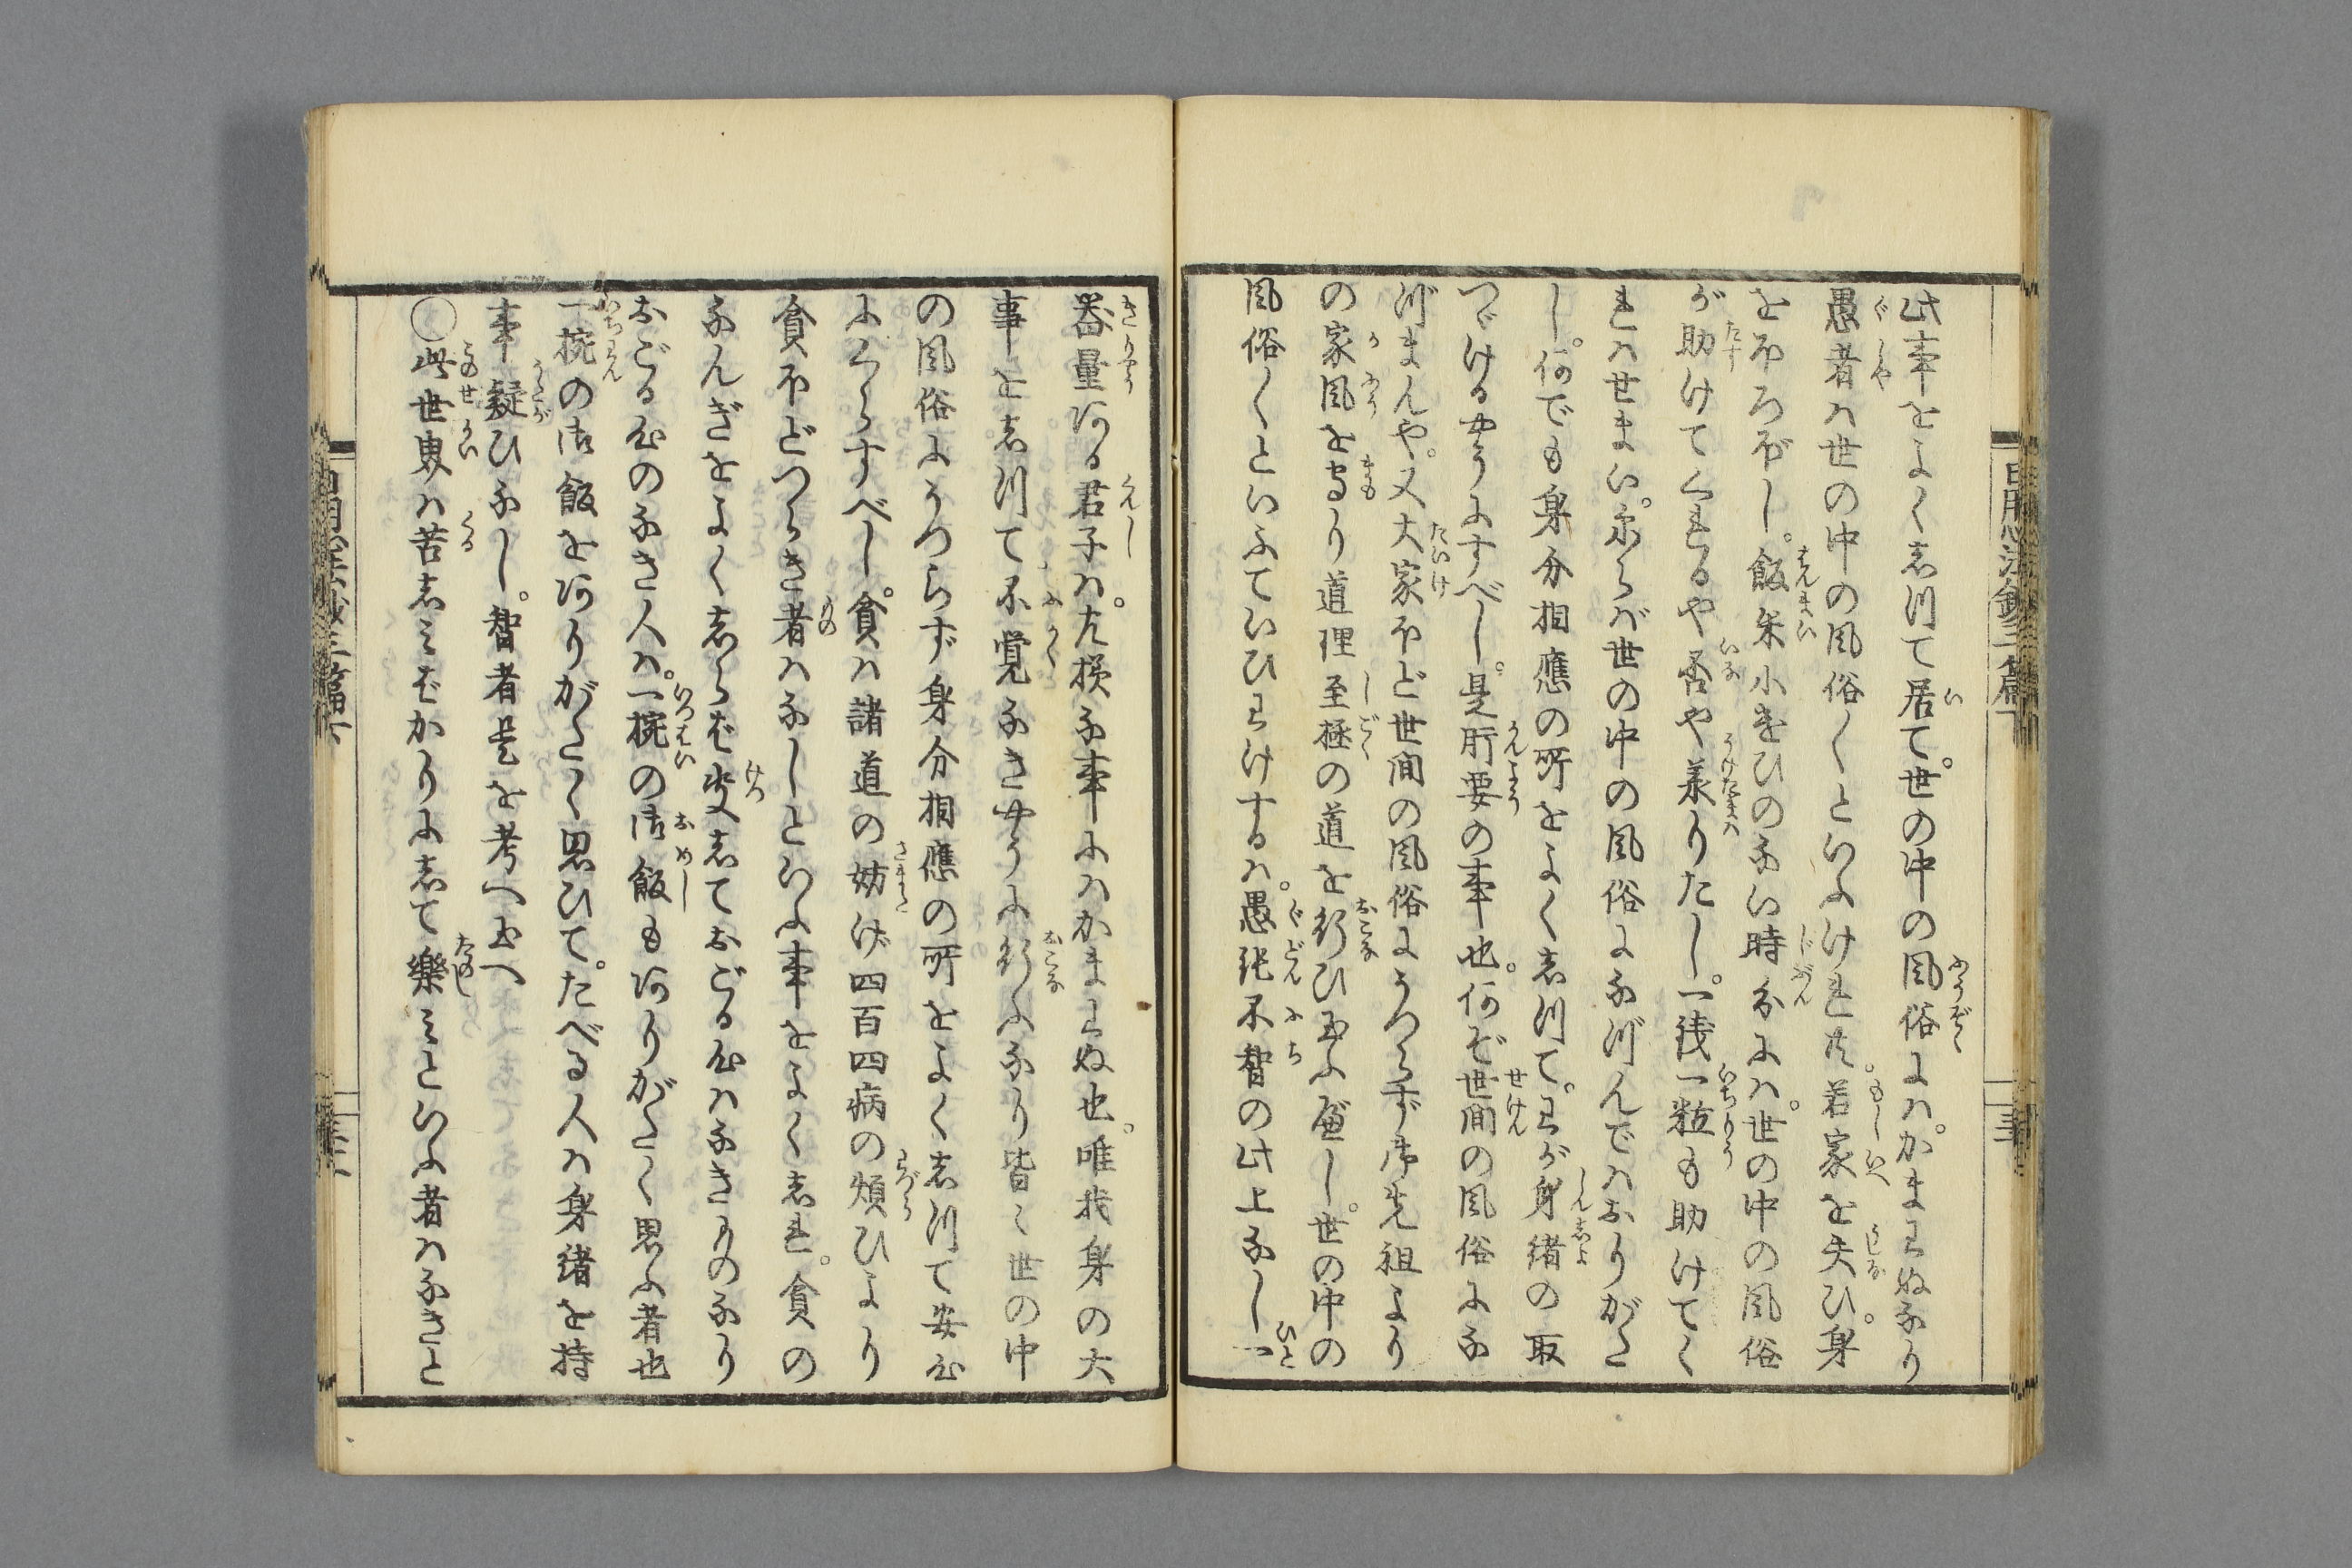 此事をよく志つて居て。世の中の風俗にハ。かまわぬなり
愚者ハ世の中の風俗〱といふけれ共。若家を失ひ。身
をほろぼし。飯米小遣ひのない時分にハ。世の中の風俗
が助けてくれるや否や承りたし。一銭一粒も助けてく
れハせまい。然らば世の中の風俗になづんでハおりがた
し。何でも身分相應の所をよく志つて。わが身緒の取
つゞける様にすべし。是肝要の事也。何ぞ世間の風俗にな
づまんや。又大家ほど世間の風俗にうつらず先祖より
の家風を守り道理至極の道を行ひ玉ふ べし。世の中の
風俗〱といふていひわけするハ。愚鈍不智の此上なし一
器量ある君子ハ。左様な事にハかまわぬ也。唯我身の大
事を志つて不覚なき様に行ふなり皆〻世の中
の風俗にうつらず身分相應の所をよく志つて安心
にくらすべし。貧ハ諸道の妨げ四百四病の煩ひより
貧ほどつらき者ハなしといふ事をよく志れ。貧の
なんぎをよく志らば决志ておごる心ハなきものなり
おごる心のなき人ハ。一椀の御飯もありがたく思ふ者也
一椀の御飯をありがたく思ひて。たべる人ハ身緒を持
事疑ひなし。智者是を考へ玉へ
〇此世界ハ苦志みばかりに志て樂みといふ者ハなきと